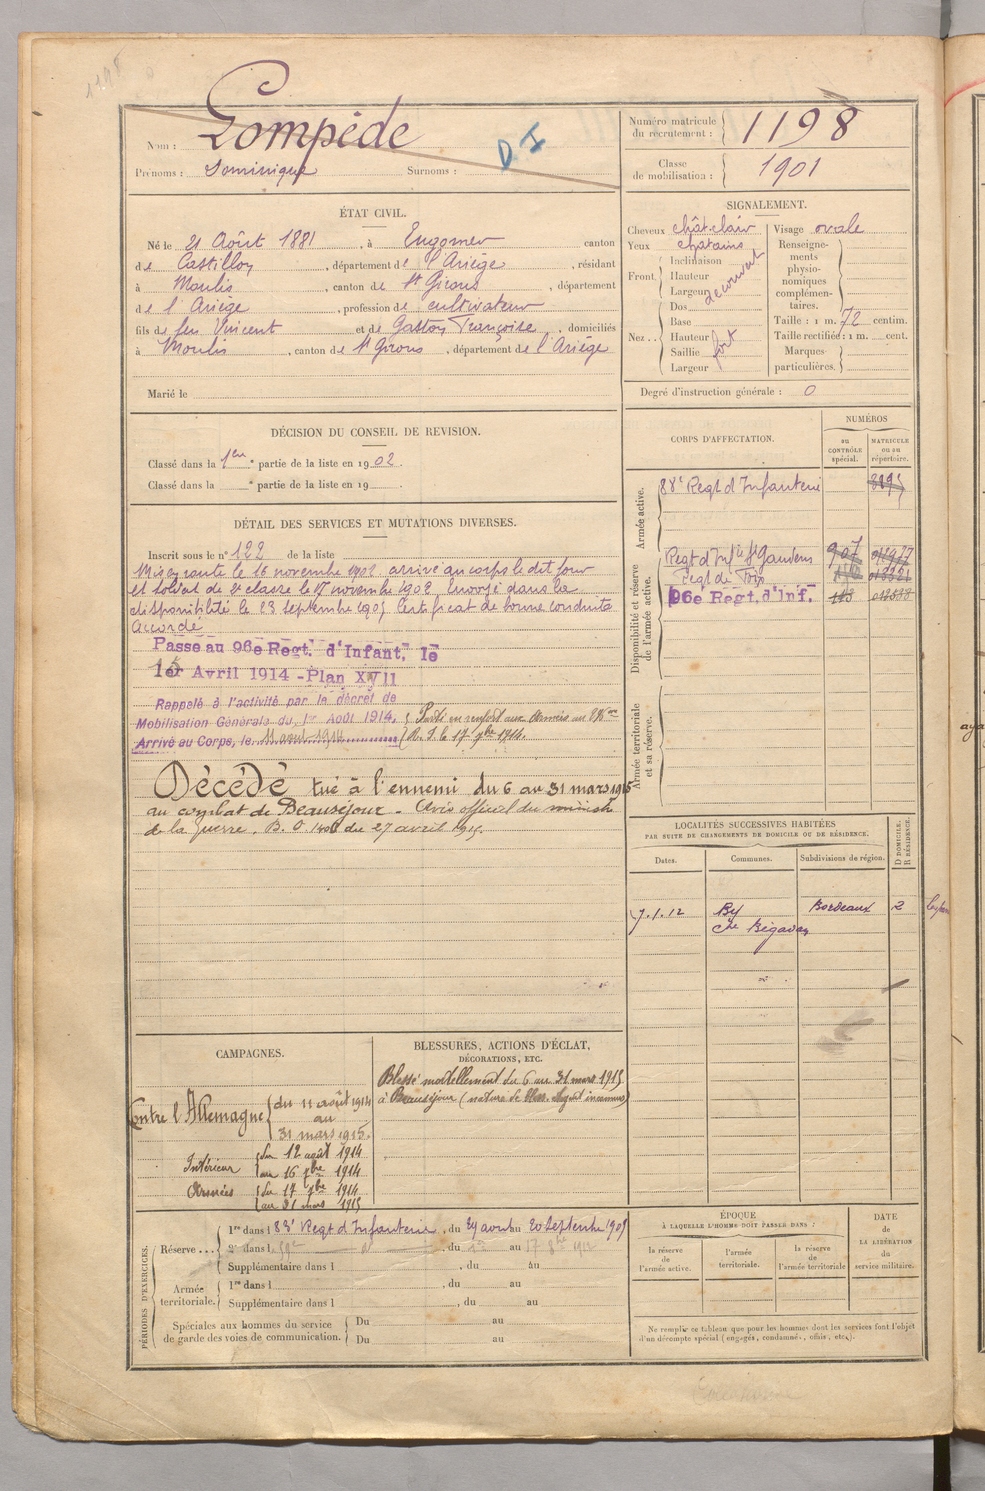 1198
Nom : Lompède
Prénoms : Dominique Surnoms :
D I
Numéro matricule du recrutement : 1198
Classe de mobilisation : 1901
ÉTAT CIVIL.
Né le 21 Août 1881, à Engomer canton
de Castillon, département de l'Ariège, résidant
à Moulis, canton de St Girons, département
de l'Ariège, profession de cultivateur
fils de feu Vincent et de Gaston Françoise, domiciliés
à Moulis, canton de St Girons, département de l'Ariège
Marié le
SIGNALEMENT.
Cheveux chât. clair
Yeux chatains
Front. Inclinaison
Hauteur
Largeur
découvert
Nez .. Dos
Base
Hauteur
Saillie
Largeur
fort
Visage ovale
Renseignements physionomiques complémentaires.
Taille : 1 m. 72 centim.
Taille rectifiée : 1 m. cent.
Marques particulières.
Degré d'instruction générale : 0
DÉCISION DU CONSEIL DE REVISION.
Classé dans la 1ere partie de la liste en 1902.
Classé dans la e partie de la liste en 19
DÉTAIL DES SERVICES ET MUTATIONS DIVERSES.
Inscrit sous le n° 122 de la liste
Mis en route le 16 novembre 1902. arrivé au corps le dit jour
et soldat de 2e classe le 17 novembre 1902. Envoyé dans la
disponibilité le 23 septembre 1905 Certificat de bonne conduite
accordé
Passé au 96e Régt. d'Infant. le
1er Avril 1914 - Plan XVII
Rappelé à l'activité par le décret de
Mobilisation Générale du 1er Août 1914.
Arrivé au Corps, le 11 août 1914
Parti en renfort aux Armées au
R. I. le 17 7bre 1914.
Décédé tué à l'ennemi du 6 au 31 mars 1915
au combat de Beauséjour - Avis officiel du ministre
de la guerre. B. O. du 27 avril 1915.
CORPS D'AFFECTATION.
NUMÉROS
au CONTRÔLE spécial.
MATRICULE ou au répertoire.
Armée active.
88e Regt d'Infanterie
Disponibilité et réserve de l'armée active.
Regt d'Infie St Gaudens 907
Regt de Foix
96e Régt. d'Inf.
Armée territoriale et sa réserve.
LOCALITÉS SUCCESSIVES HABITÉES
PAR SUITE DE CHANGEMENTS DE DOMICILE OU DE RÉSIDENCE.
Dates. Communes. Subdivisions de région. D DOMICILE. R RÉSIDENCE.
7.1.12 By Bordeaux R
Cne Bégadan
CAMPAGNES.
Contre l'Allemagne
du 11 août 1914
au
31 mars 1915.
Intérieur du 12 août 1914
au 16 7bre 1914
Armées du 17 7bre 1914
au 31 mars 1915
BLESSURES, ACTIONS D'ÉCLAT,
DÉCORATIONS, ETC.
Blessé mortellement du 6 au 31 mars 1915
à Beauséjour (nature de bles. Agent inconnus)
PÉRIODES D'EXERCICES.
Réserve ... 1re dans l 88e Regt d'Infanterie, du 24 août au 20 Septembre 1908
2e dans l 59e, du au 17 8bre 1912
Supplémentaire dans l , du au
Armée territoriale. 1re dans l , du au
Supplémentaire dans l , du au
Spéciales aux hommes du service de garde des voies de communication. Du au
Du au
ÉPOQUE
À LAQUELLE L'HOMME DOIT PASSER DANS :
la réserve de l'armée active.
l'armée territoriale.
la réserve de l'armée territoriale
DATE DE LA LIBÉRATION du service militaire.
Ne remplir ce tableau que pour les hommes dont les services font l'objet
d'un décompte spécial (engagés, condamnés, omis, etc.)